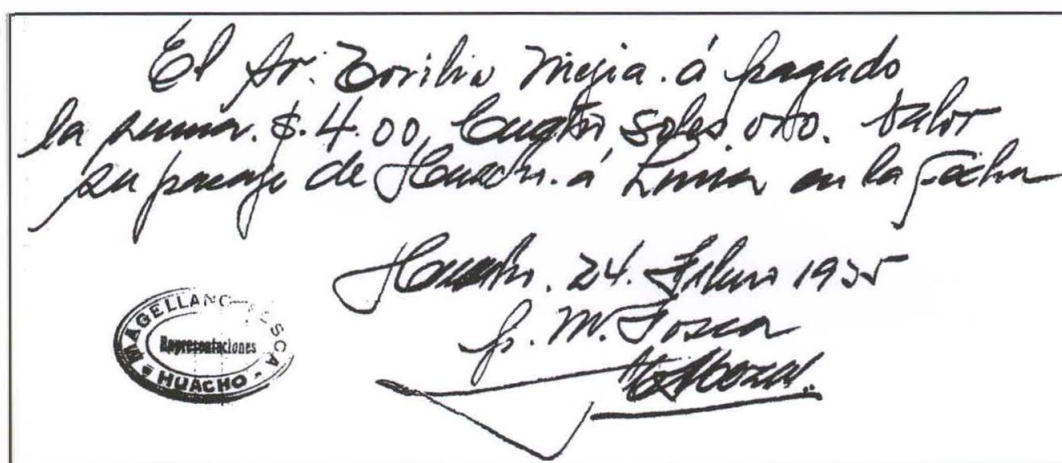 El Sr. Toribio Mejia. á pagado
la suma. $. 4.00, Cuatro soles oro. Valor
su pasaje de Huacho. á Lima en la Fecha
Huacho. 24. Febrero 1935
p. M. Fosca
MAGELLANO FOSCA
Representaciones
HUACHO